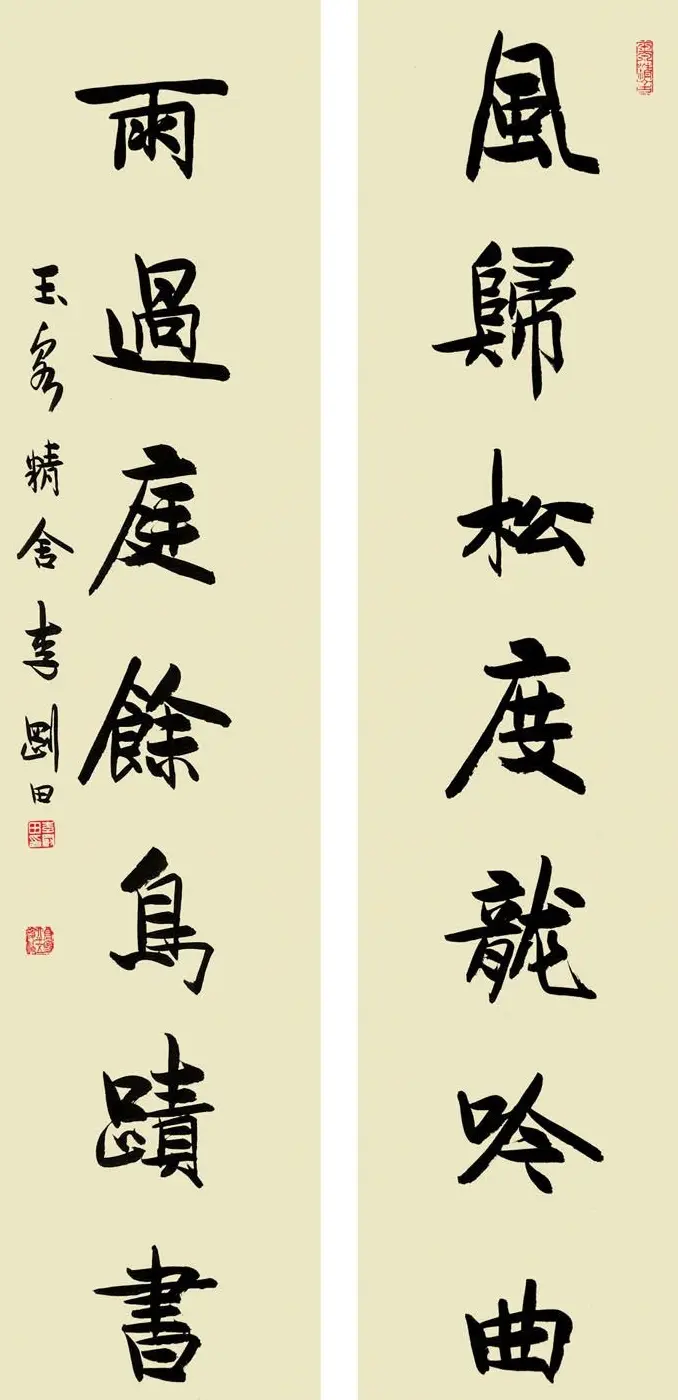 風歸松度龍吟曲
雨過庭餘鳥蹟書
玉客精舍李剛田